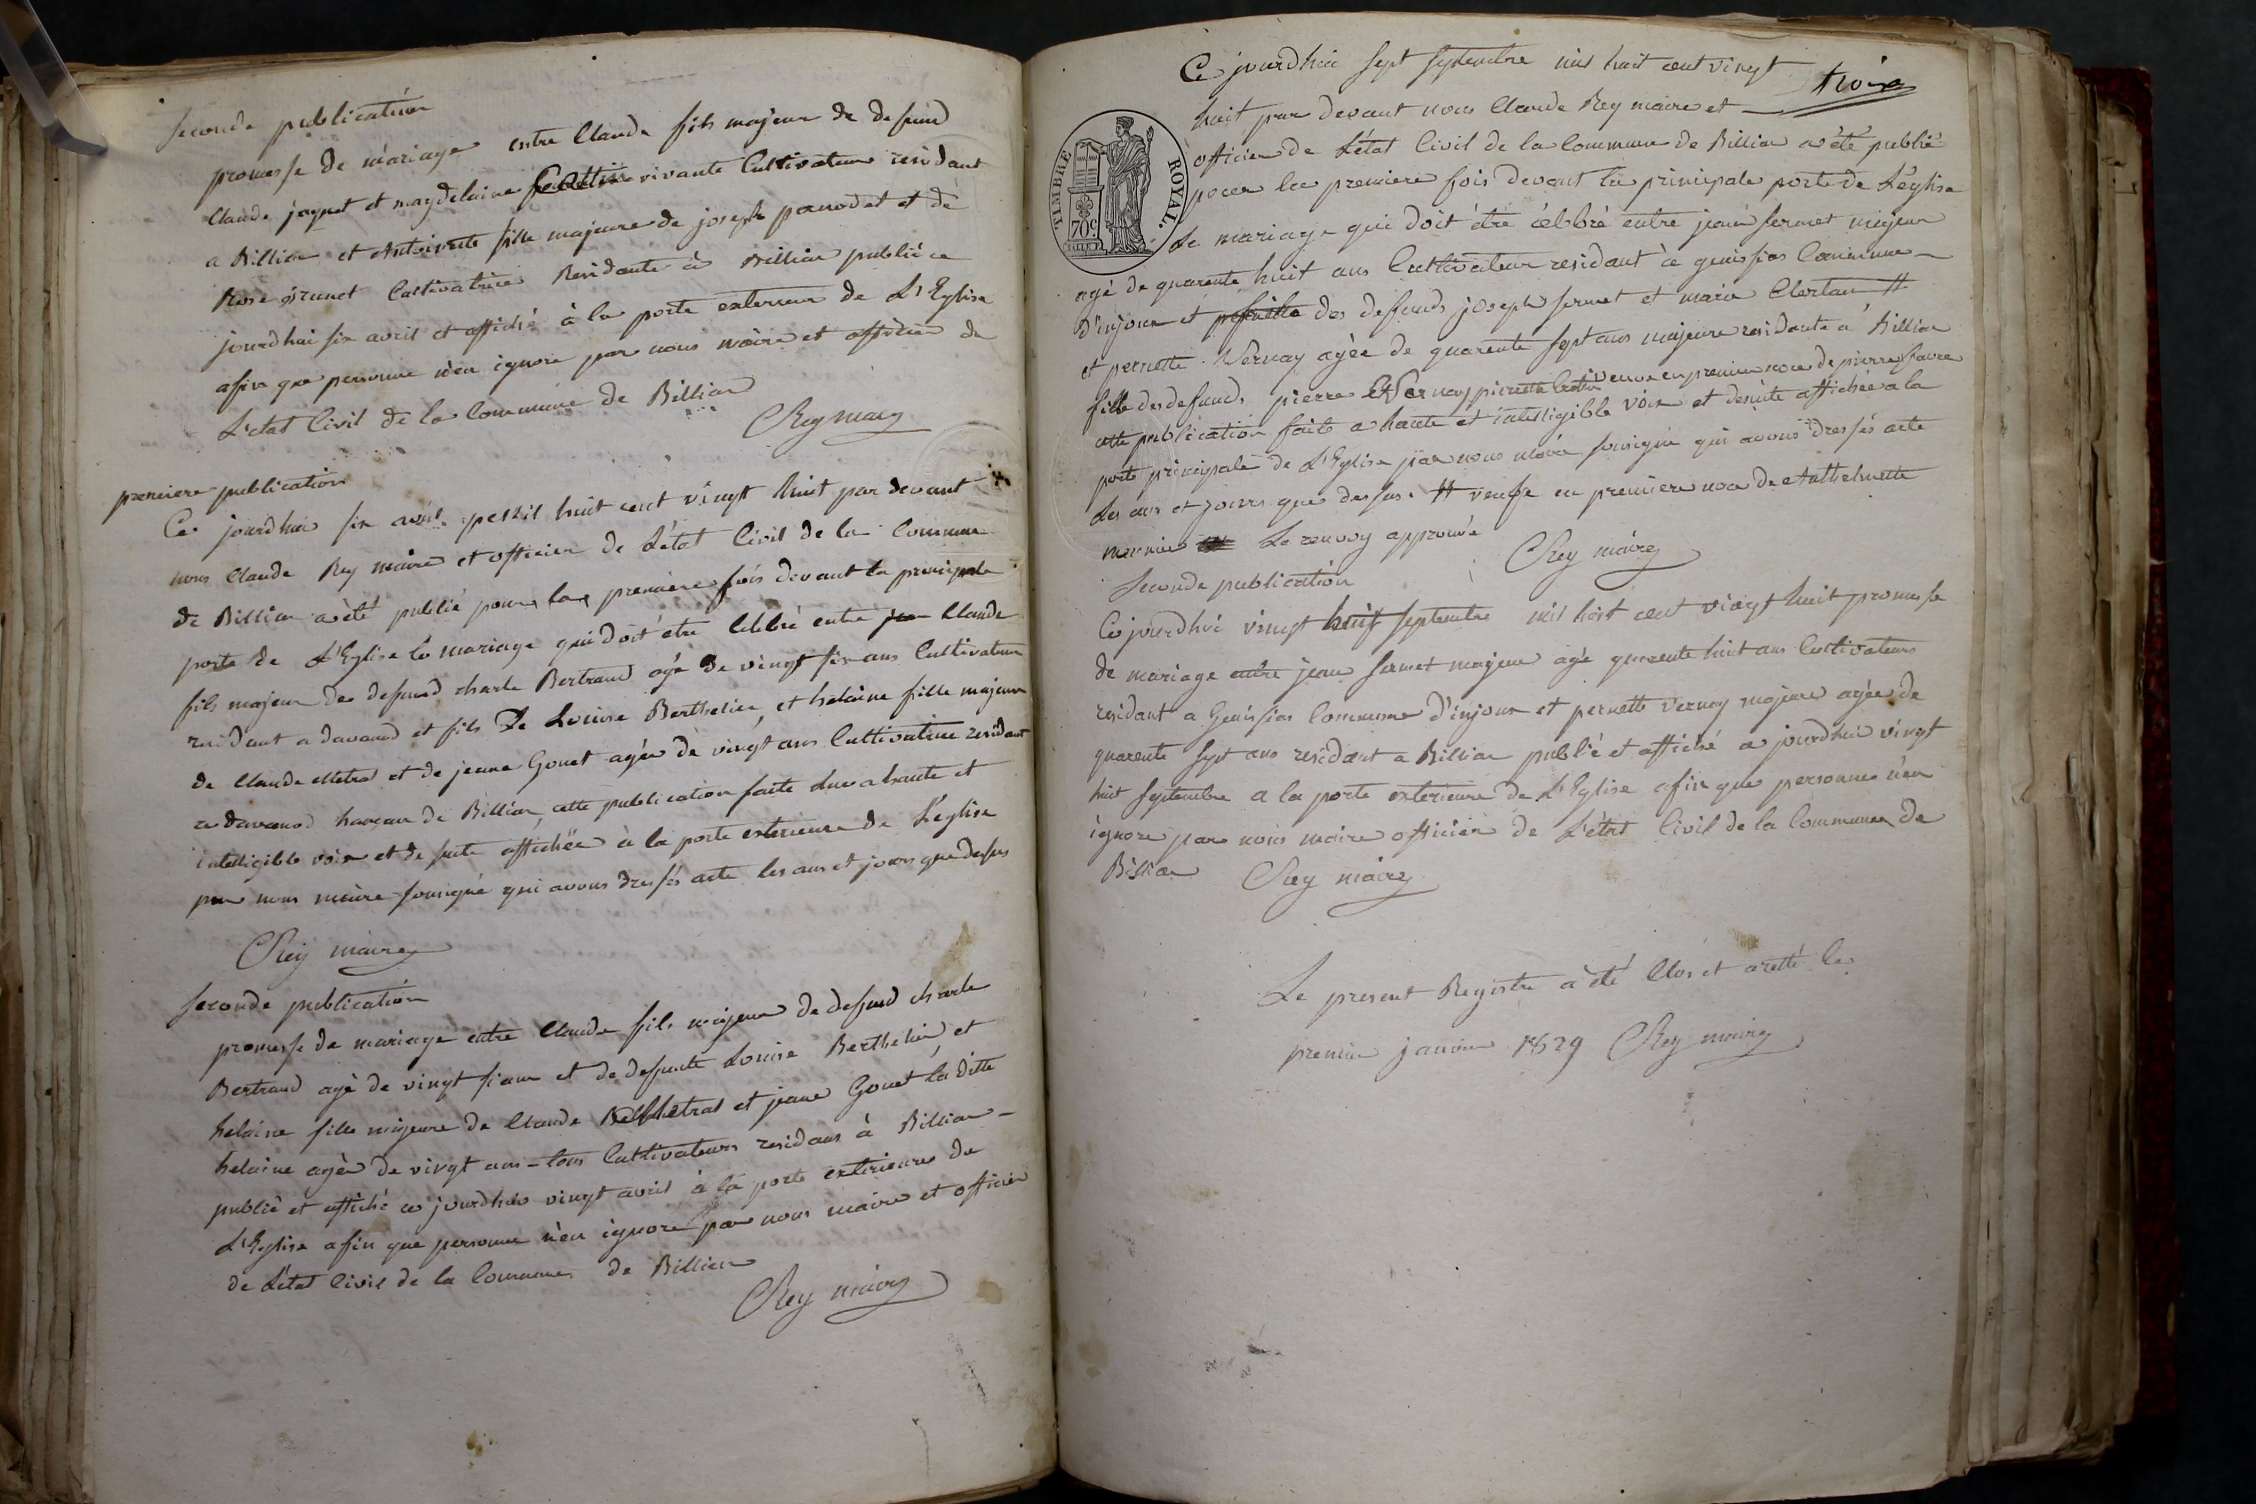 Seconde publication
promesse de mariage entre Claude fils majeur de defund
Claude jaquet et magdelaine vivante Cultivateur residant
a Billiat et Antoinette fille majeure de joseph pernodet et de
Rose Brunet Cultivatrice Residante à Billiat publié ce
jourdhui six avril et affiché à la porte exterieur de L'Eglise
afin que personne n'en ignore par nous maire et officier de
L'etat Civil de la Commune de Billiat
CRey maire
premiere publication
Ce jourdhui six avril mil huit cent vingt huit par devant
nous Claude Rey maire et officier de L'état Civil de la Commune
de Billiat a été publié pour la premiere fois devant la principale
porte de L'Eglise le mariage qui doit etre celebré entre Claude
fils majeur de defund charle Bertrand agé de vingt six ans Cultivateur
residant a davanod et fils de Louise Berthelier, et helaine fille majeure
de Claude Metral et de jeane Gonet agée de vingt ans Cultivatrice residant
a davanod hameau de Billiat, cette publication faite a haute et
intelligible voix et de suite affichée à la porte exterieure de L'église
par nous maire sousigné qui avons dressés acte les ans et jours que dessus
CRey maire
Seconde publication
promesse de mariage entre Claude fils majeur de defund charle
Bertrand agé de vingt six ans et de defunte Louise Berthelier, et
helaine fille majeure de Claude Metral et jeane Gonet la ditte
helaine agée de vingt ans - tous Cultivateurs residans à Billiat -
publié et affiché ce jourdhui vingt avril à la porte exterieure de
L'Eglise afin que personne n'en ignore par nous maire et officier
de L'état Civil de la Commune de Billiat
CRey maire
trois
Ce jourdhui sept septembre mil huit cent vingt
huit par devant nous Claude Rey maire et
officier de L'état Civil de la Commune de Billiat a été publié
pour la premiere fois devant la principale porte de L'église
Le mariage qui doit étre célebré entre jean fermet majeur
agé de quarente huit ans Cultivateur residant à genissiat Commune
d'injoux et des defunds joseph fermet et marie Clertan #
et pernette Vernay agée de quarente sept ans majeure residante a Billiat
fille des defunds pierre Vernay pierrette veuve en premier noce de pierre favre
cette publication faite a haute et intelligible voix et de suite affichée a la
porte principale de L'Eglise par nous maire sousigné qui avons dressés acte
Les ans et jours que dessus. # veufe en premiere noce de
meunier Le renvoy approuvé
CRey maire
TIMBRE ROYAL.
70 c
Seconde publication
Ce jourdhui vingt huit septembre mil huit cent vingt huit promesse
de mariage entre jean fermet majeur agé quarente huit ans Cultivateur
residant a Genissiat Commune d'injoux et pernette Vernay majeure agée de
quarente sept ans residant a Billiat publié et affiché a jourdhui vingt
huit septembre a la porte exterieure de L'Eglise afin que personne n'en
ignore par nous maire officier de L'état Civil de la Commune de
Billiat CRey maire
Le present Registre a été Clos et aretté le
premier janvier 1829 CRey maire